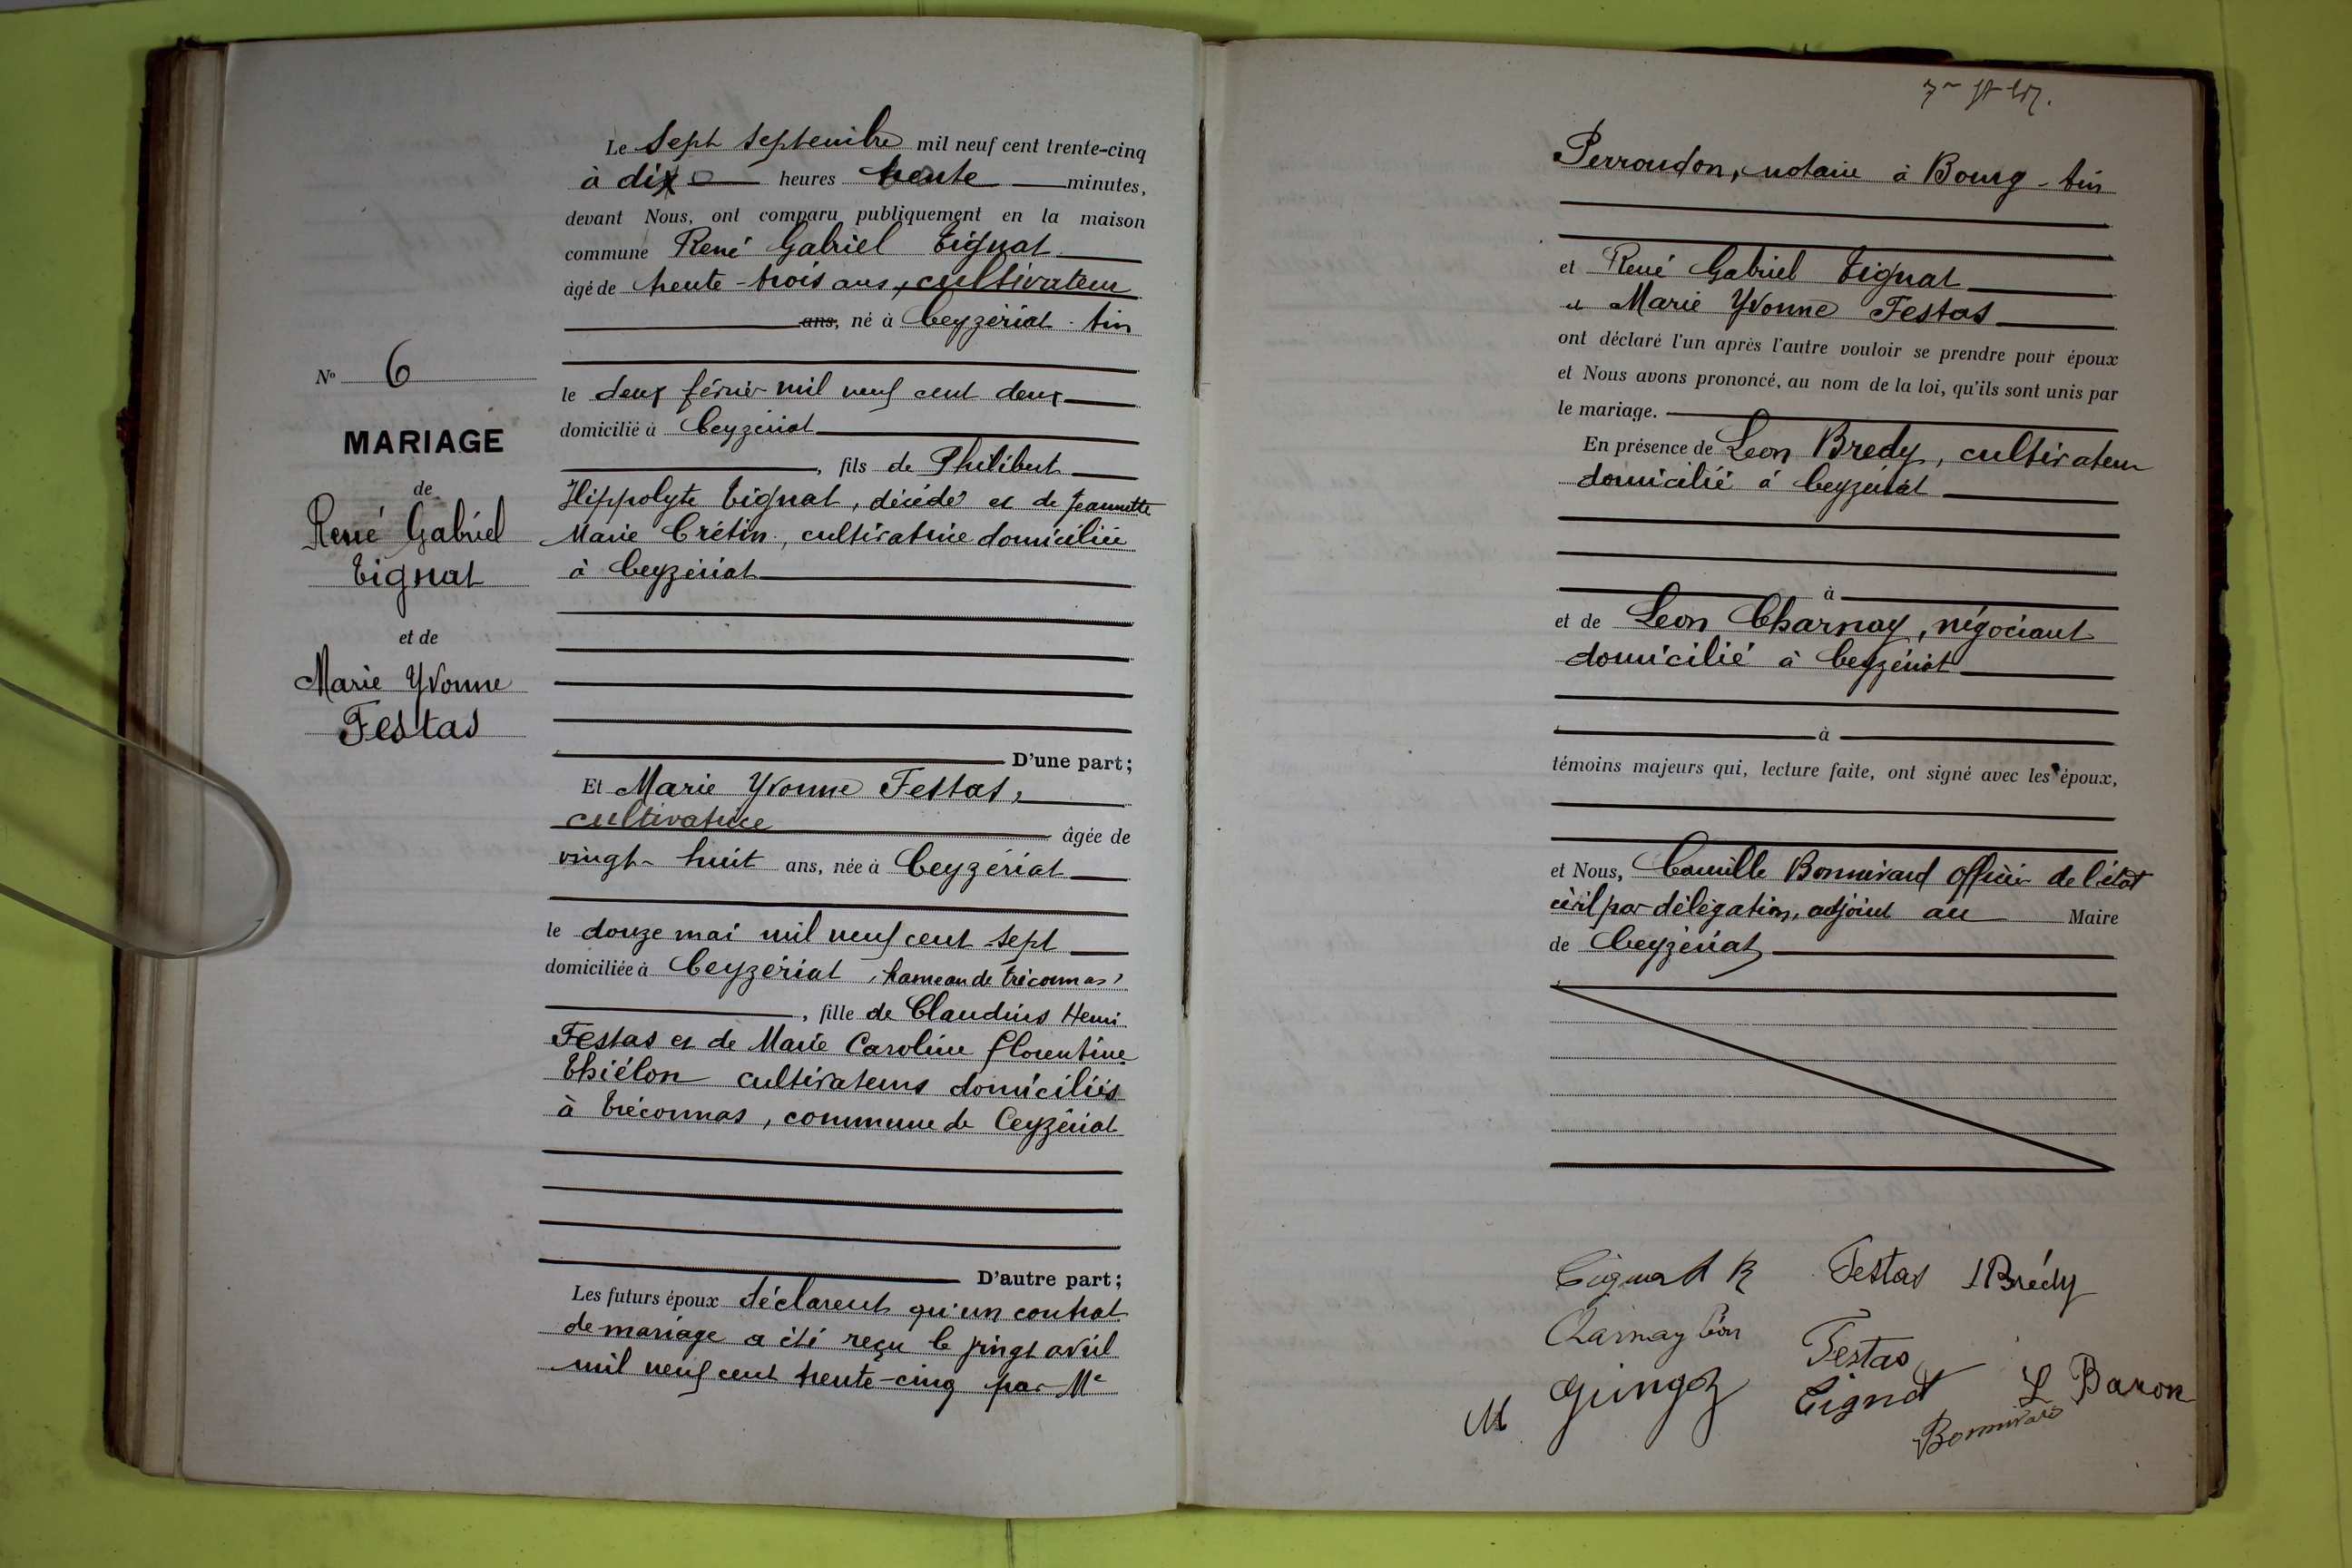 Le sept septembre mil neuf cent trente-cinq
à dix heures trente minutes,
devant Nous, ont comparu publiquement en la maison
commune René Gabriel Tignat
âgé de trente-trois ans, cultivateur
ans, né à Ceyzériat. Ain
le deux février mil neuf cent deux
domicilié à Ceyzériat
, fils de Philibert
Hippolyte Tignat, décédé et de Jeannette
Marie Crétin, cultivatrice domiciliée
à Ceyzériat
D'une part;
Et Marie Yvonne Festas,
cultivatrice âgée de
vingt-huit ans, née à Ceyzériat
le douze mai mil neuf cent sept
domiciliée à Ceyzériat, hameau de Tréconnas,
, fille de Claudius Henri
Festas et de Marie Caroline Florentine
Thiélon cultivateurs domiciliés
à Tréconnas, commune de Ceyzériat
D'autre part;
Les futurs époux déclarent qu'un contrat
de mariage a été reçu le vingt avril
mil neuf cent trente-cinq par Me
No 6
MARIAGE
de
René Gabriel
Tignat
et de
Marie Yvonne
Festas
Perroudon, notaire à Bourg-Ain
et René Gabriel Tignat
et Marie Yvonne Festas
ont déclaré l'un après l'autre vouloir se prendre pour époux
et Nous avons prononcé, au nom de la loi, qu'ils sont unis par
le mariage.
En présence de Leon Bredy, cultivateur
domicilié à Ceyzériat
à
et de Leon Charnay, négociant
domicilié à Ceyzériat
à
témoins majeurs qui, lecture faite, ont signé avec les époux,
et Nous, Camille Bonnivard officier de l'état
civil par délégation, adjoint au Maire
de Ceyzériat
Tignat R Festas L Brédy
Charnay Léon Festas
M Guingoz Tignat L Baron
Bonnivard